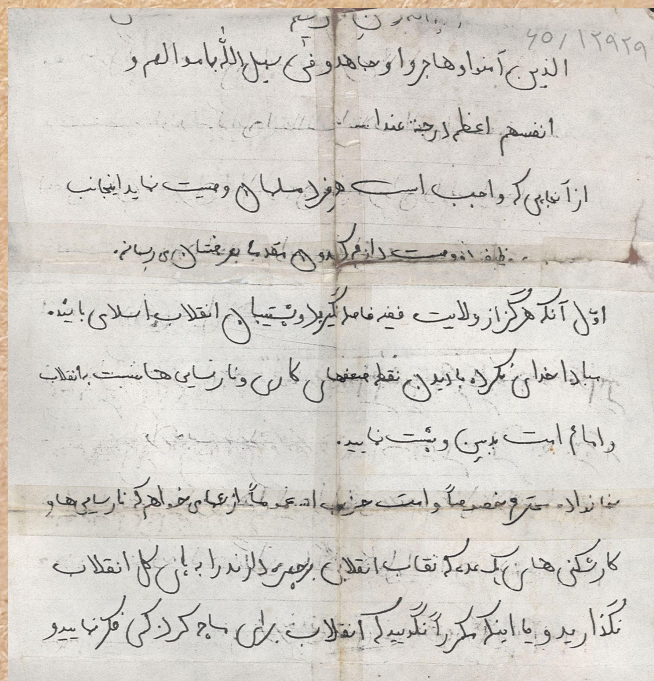 ۶۵/۱۲۹۲۹
الذین آمنوا و هاجروا و جاهدو فی سبیل الله باموالهم و
انفسهم اعظم درجة عند ا...
از آنجایی که واجب است هر فرد مسلمان وصیت نماید اینجانب
وصیت دارم که بدون مقدمه بعرضتان می رسانم.
اوّل آنکه هرگز از ولایت فقیه فاصله نگیرید و پشتیبان انقلاب اسلامی باشید.
مبادا خدای نکرده با دیدن نقطه ضعفهای کاری و نارسایی ها نسبت بانقلاب
و امام امت بدبین و پشت نمایید.
خانواده محترم خصوصاً و امت حزب الله عموماً از شما می خواهم که نارسایی ها و
کارشکنی های یک عده که نقاب انقلابی بر چهره دارند را به پای کل انقلاب
نگذارید و یا اینکه مکرراً نگویید که انقلاب برای ما چه کرد کمی فکر نمایید و